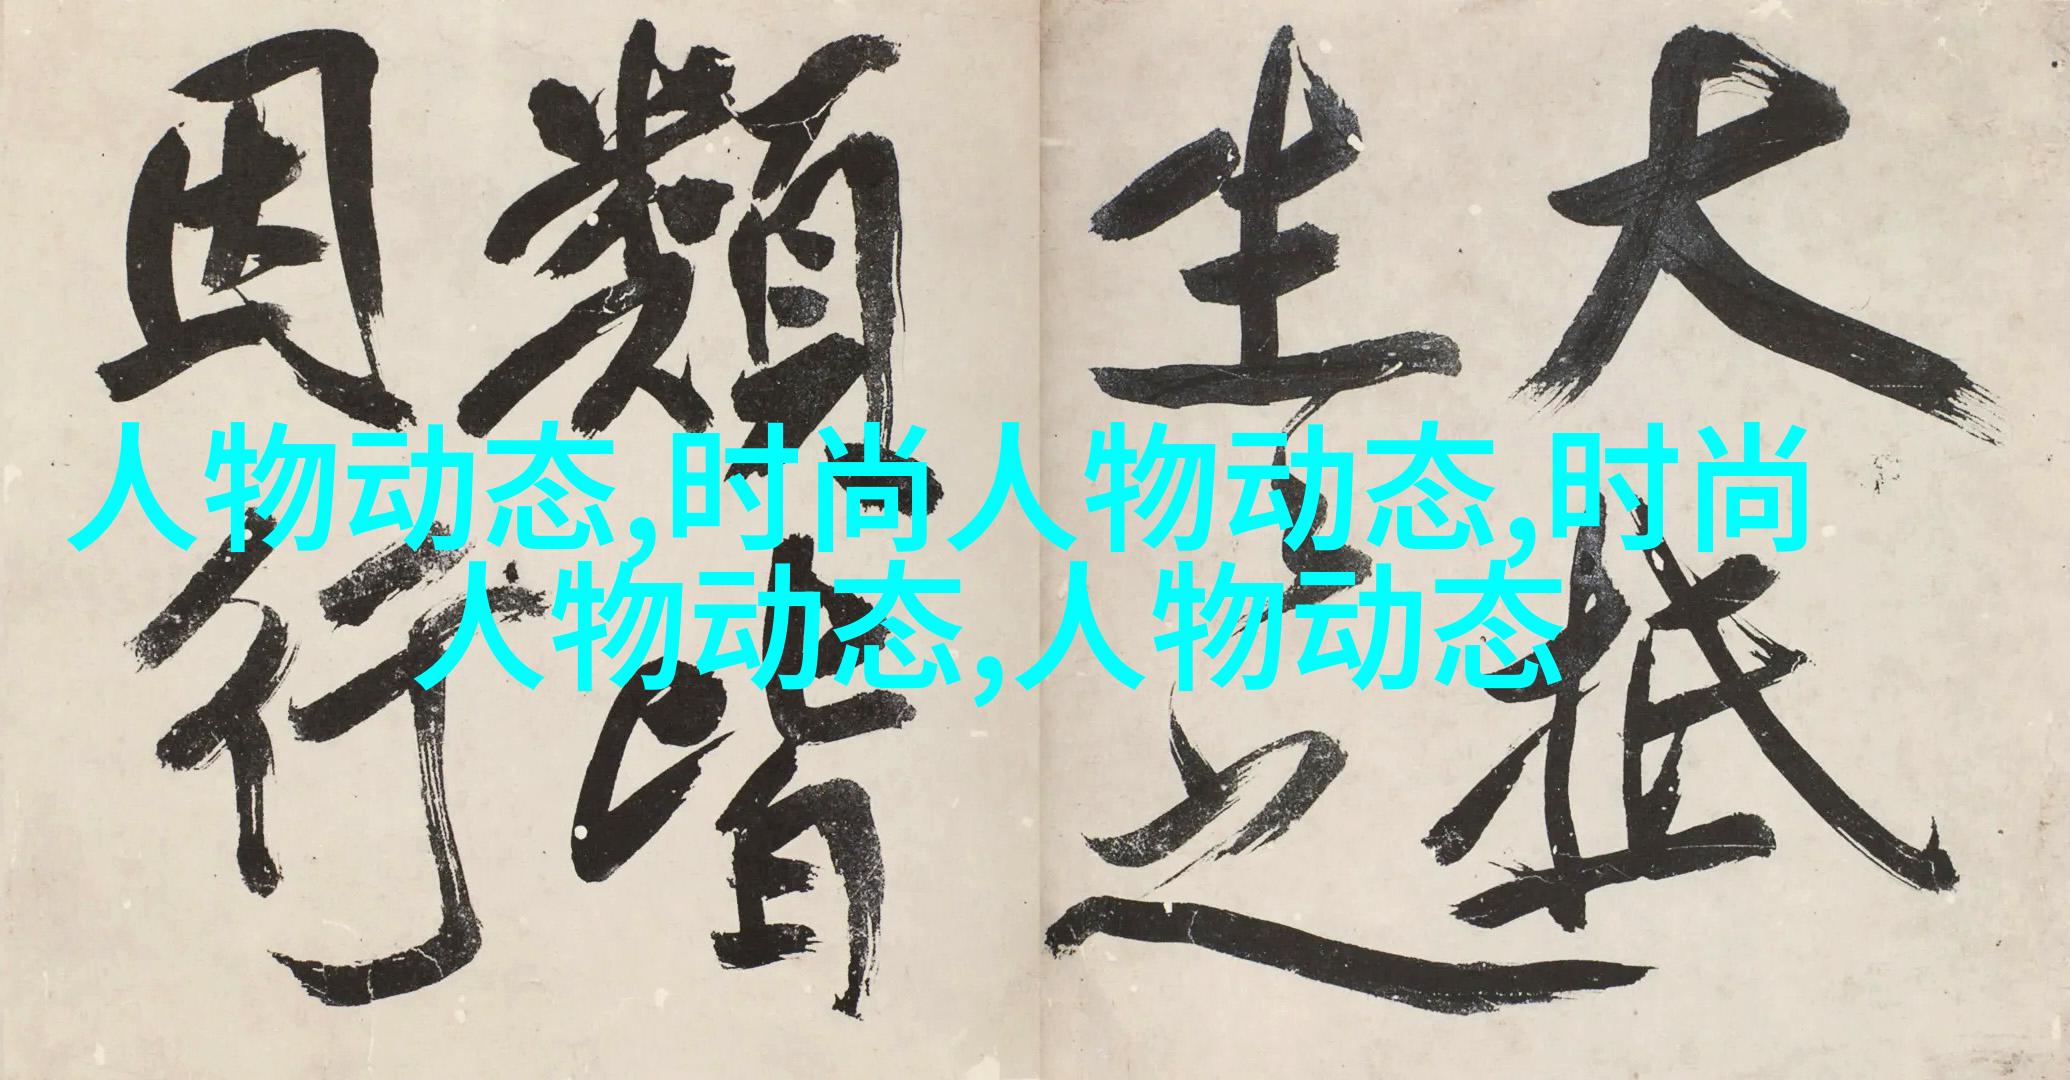 大抵
生之
類皆
因行
人物动态,时尚人物动态,时尚
人物动态,人物动态